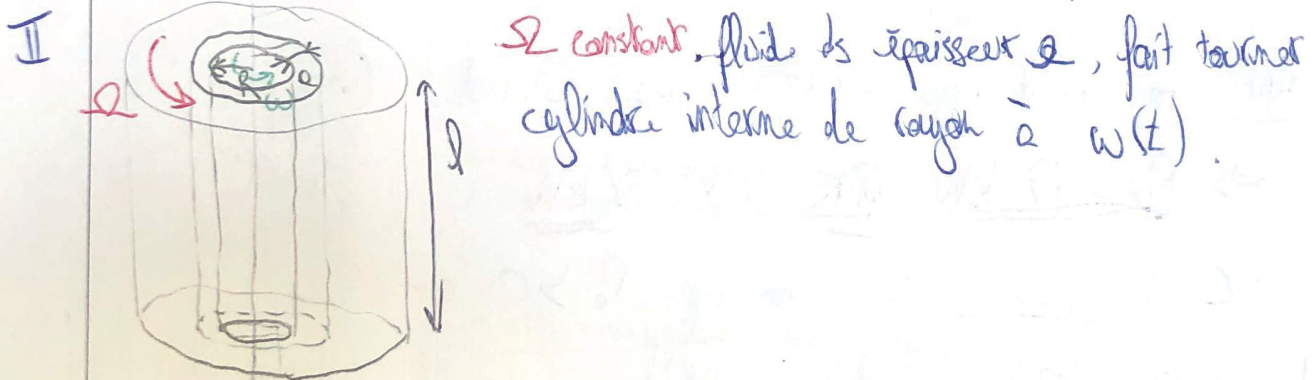 II
Ω constant, fluide ds épaisseur e, fait tourner
cylindre interne de rayon a à ω(t).
Ω
R
e
ω
l